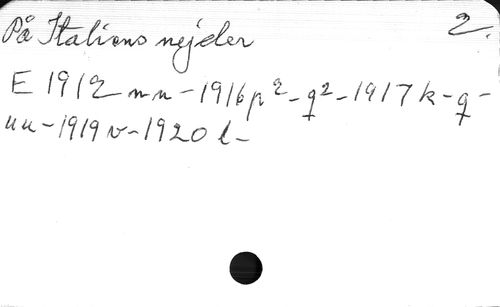 På Italiens nejder 2.
E 1912 nn - 1916 p² - q² - 1917 k - q -
uu - 1919 v - 1920 l -